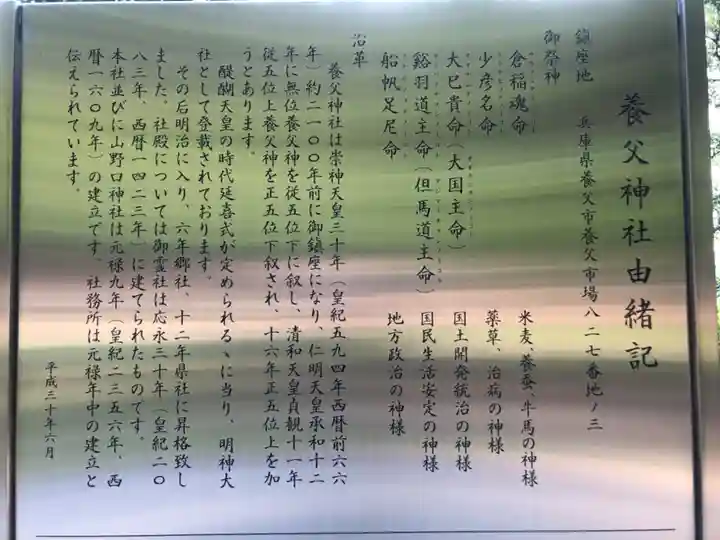 養父神社由緒記
鎮座地 兵庫県養父市養父市場八二七番地ノ三
御祭神
倉稲魂命 米麦、養蚕、牛馬の神様
少彦名命 薬草、治病の神様
大巳貴命(大国主命) 国土開発統治の神様
谿羽道主命(但馬道主命) 国民生活安定の神様
船帆足尼命 地方政治の神様
沿革
養父神社は崇神天皇三十年(皇紀五九四年西暦前六六
年)約二一〇〇年前に御鎮座になり、仁明天皇承和十二
年に無位養父神を従五位下に叙し、清和天皇貞観十一年
従五位上養父神を正五位下叙され、十六年正五位上を加
うとあります。
醍醐天皇の時代延喜式が定められるゝに当り、明神大
社として登載されております。
その后明治に入り、六年郷社、十二年県社に昇格致し
ました。社殿については御霊社は応永三十年(皇紀二〇
八三年、西暦一四二三年)に建てられたものです。
本社並びに山野口神社は元禄九年(皇紀二三五六年、西
暦一六〇九年)の建立です。社務所は元禄年中の建立と
伝えられています。
平成三十年六月